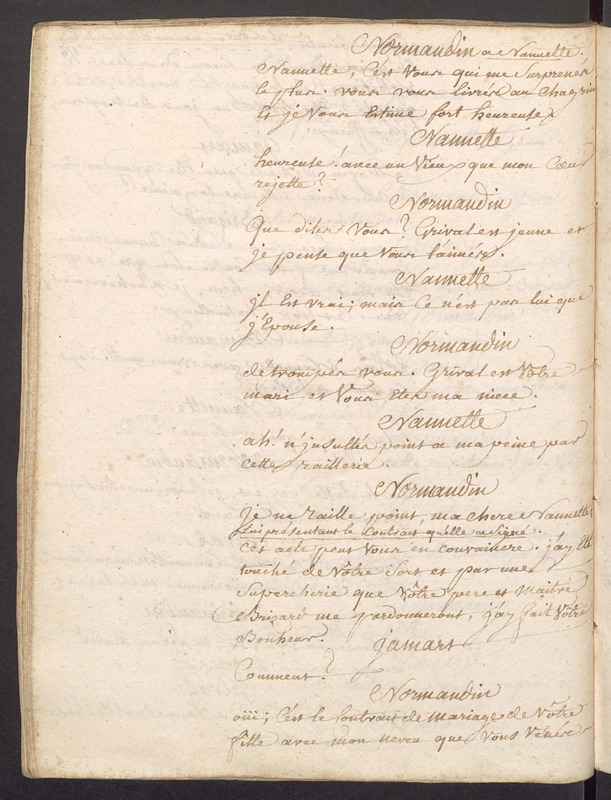 Normandin a Nannette.
Nannette, C'est Vous qui me Surprenés
le plus. vous vous livrés au Chagrin
Et je Vous Estime fort heureuse.
Nannette
heureuse! avec un Vieux que mon Cœur
rejette?
Normandin
Que dites Vous? Grival est jeune et
je pense que Vous l'aimés.
Nannette
jl Est vrai; mais Ce n'est pas lui que
j'Epouse.
Normandin
détrompés vous. Grival est Votre
mari et Vous Etes ma niece.
Nannette
ah! n'jnsultés point a ma peine par
cette raillerie.
Normandin
Je ne raille point, ma chere Nannette,
lui présentant le Contract qu'elle a Signé.
Cet acte peut Vous en convaincre. j'ay Eté
touché de Vôtre Sort et par une
Supercherie que Vôtre pere et Maitre
Brisard me pardonneront, j'ay fait Vôtre
Bonheur.
jamart
Comment?
Normandin
oüi; C'est le Contrat de Mariage de Vôtre
fille avec mon neveu que Vous Venés